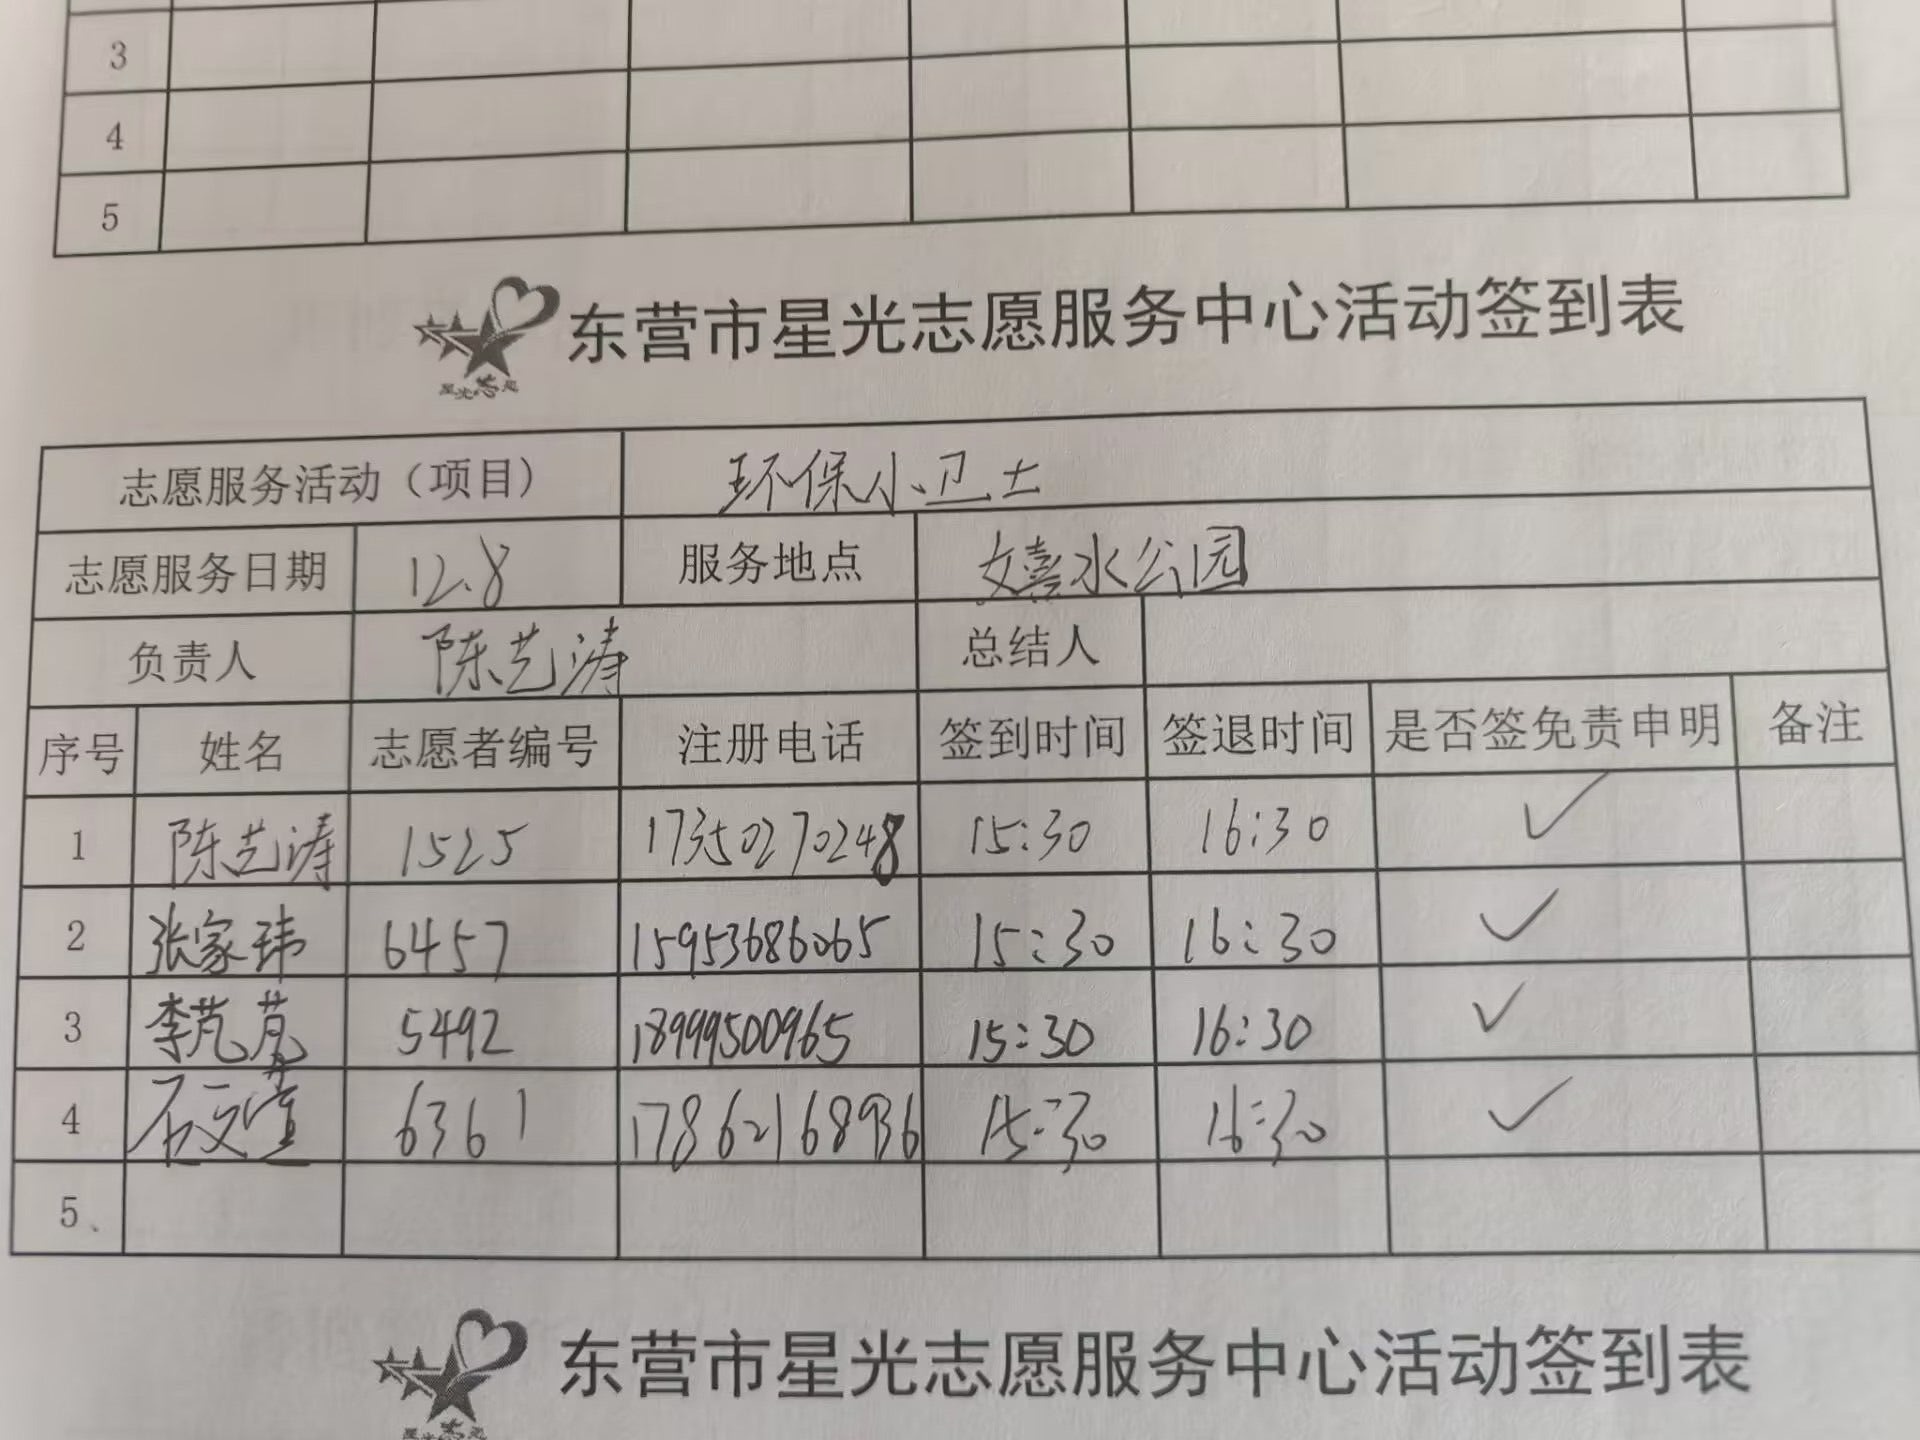 3
4
5
东营市星光志愿服务中心活动签到表
星光志愿
志愿服务活动（项目） 环保小卫士
志愿服务日期 12.8 服务地点 嬉水公园
负责人 陈艺涛 总结人
序号 姓名 志愿者编号 注册电话 签到时间 签退时间 是否签免责申明 备注
1 陈艺涛 1525 17350270248 15:30 16:30 ✓
2 张家玮 6457 15953686065 15:30 16:30 ✓
3 李芃芃 5492 18999500965 15:30 16:30 ✓
4 石文萱 6361 17862168936 15:30 16:30 ✓
5、
东营市星光志愿服务中心活动签到表
星光志愿